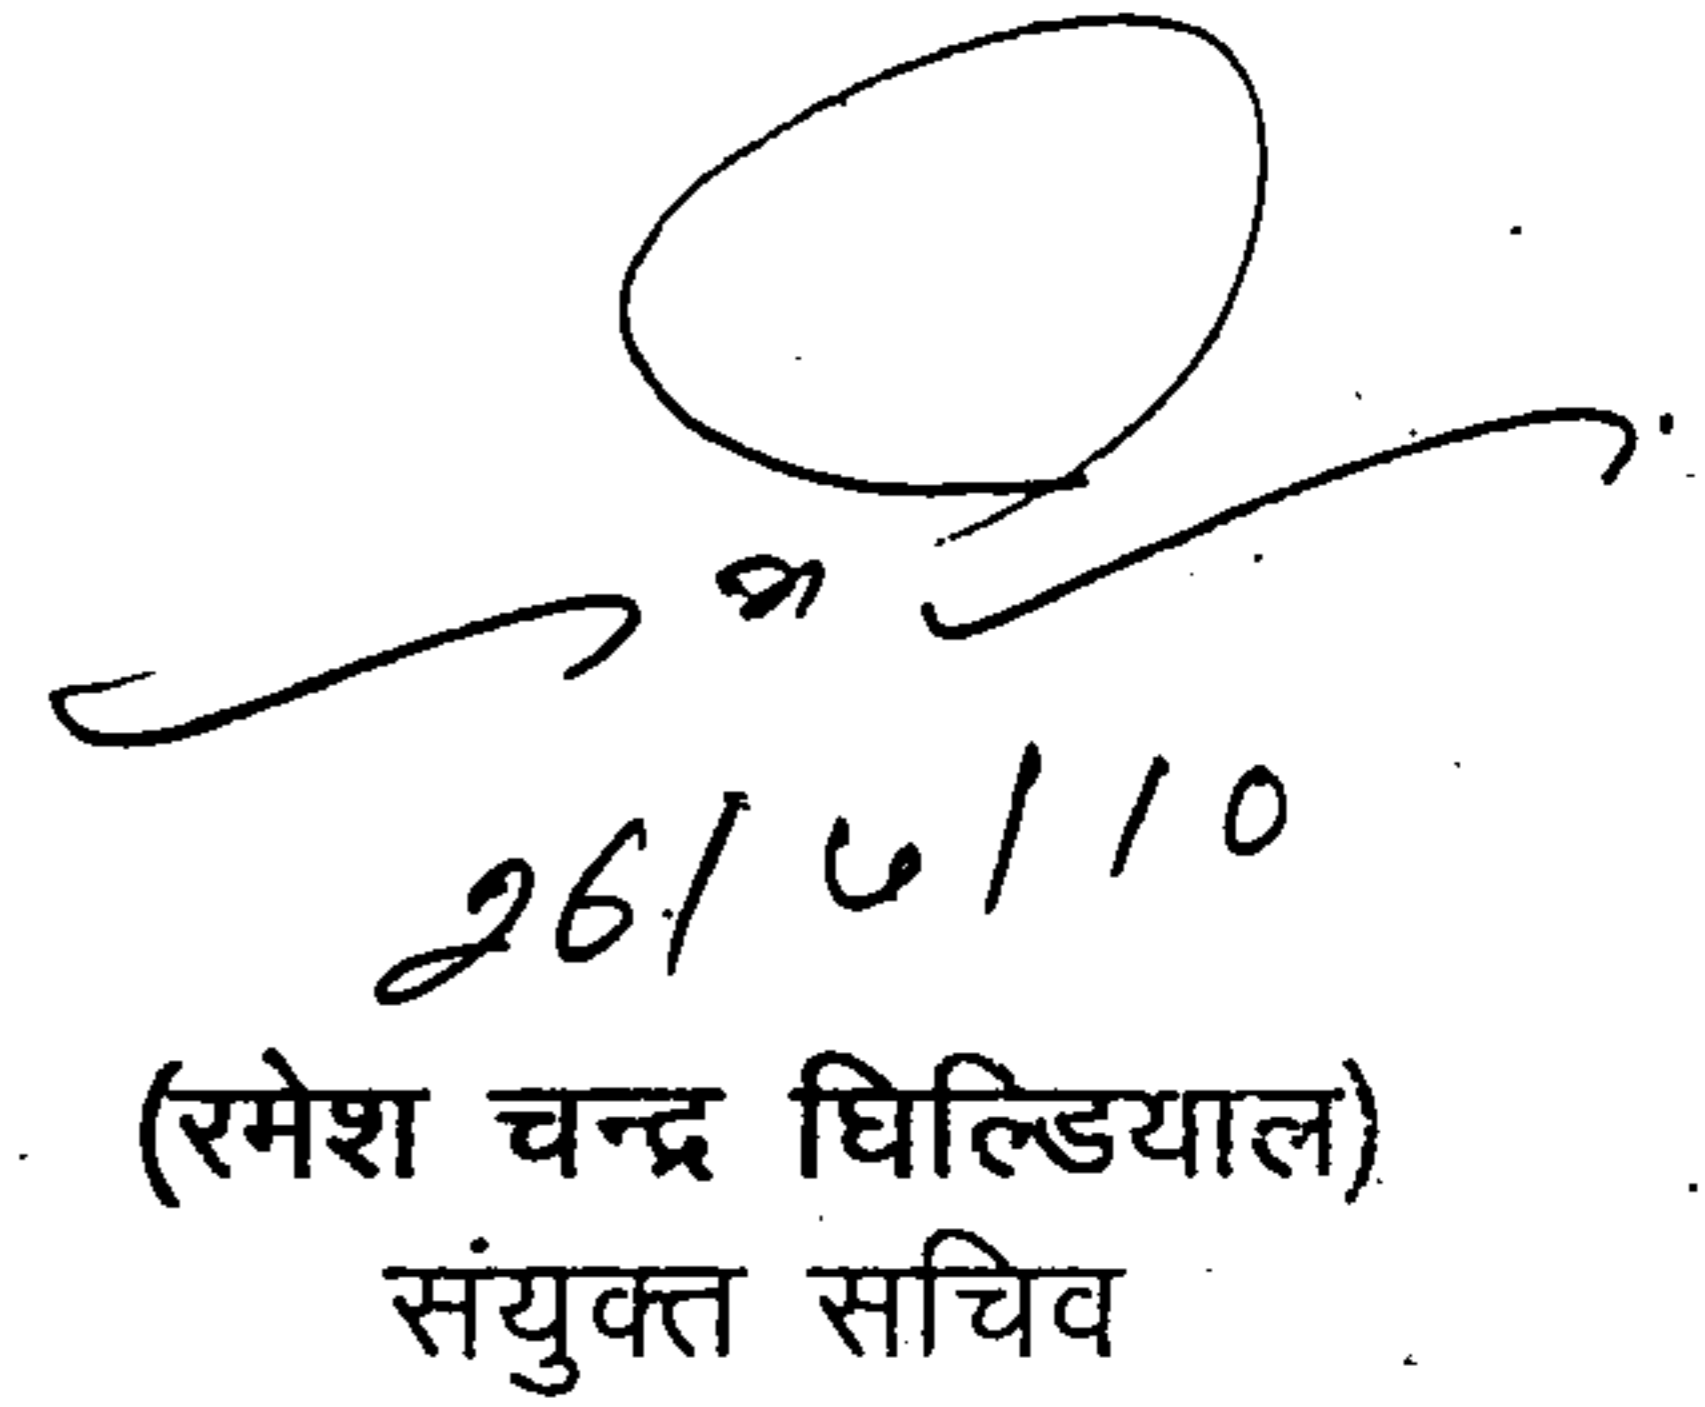 26/6/10
(रमेश चन्द्र घिल्डियाल)
संयुक्त सचिव